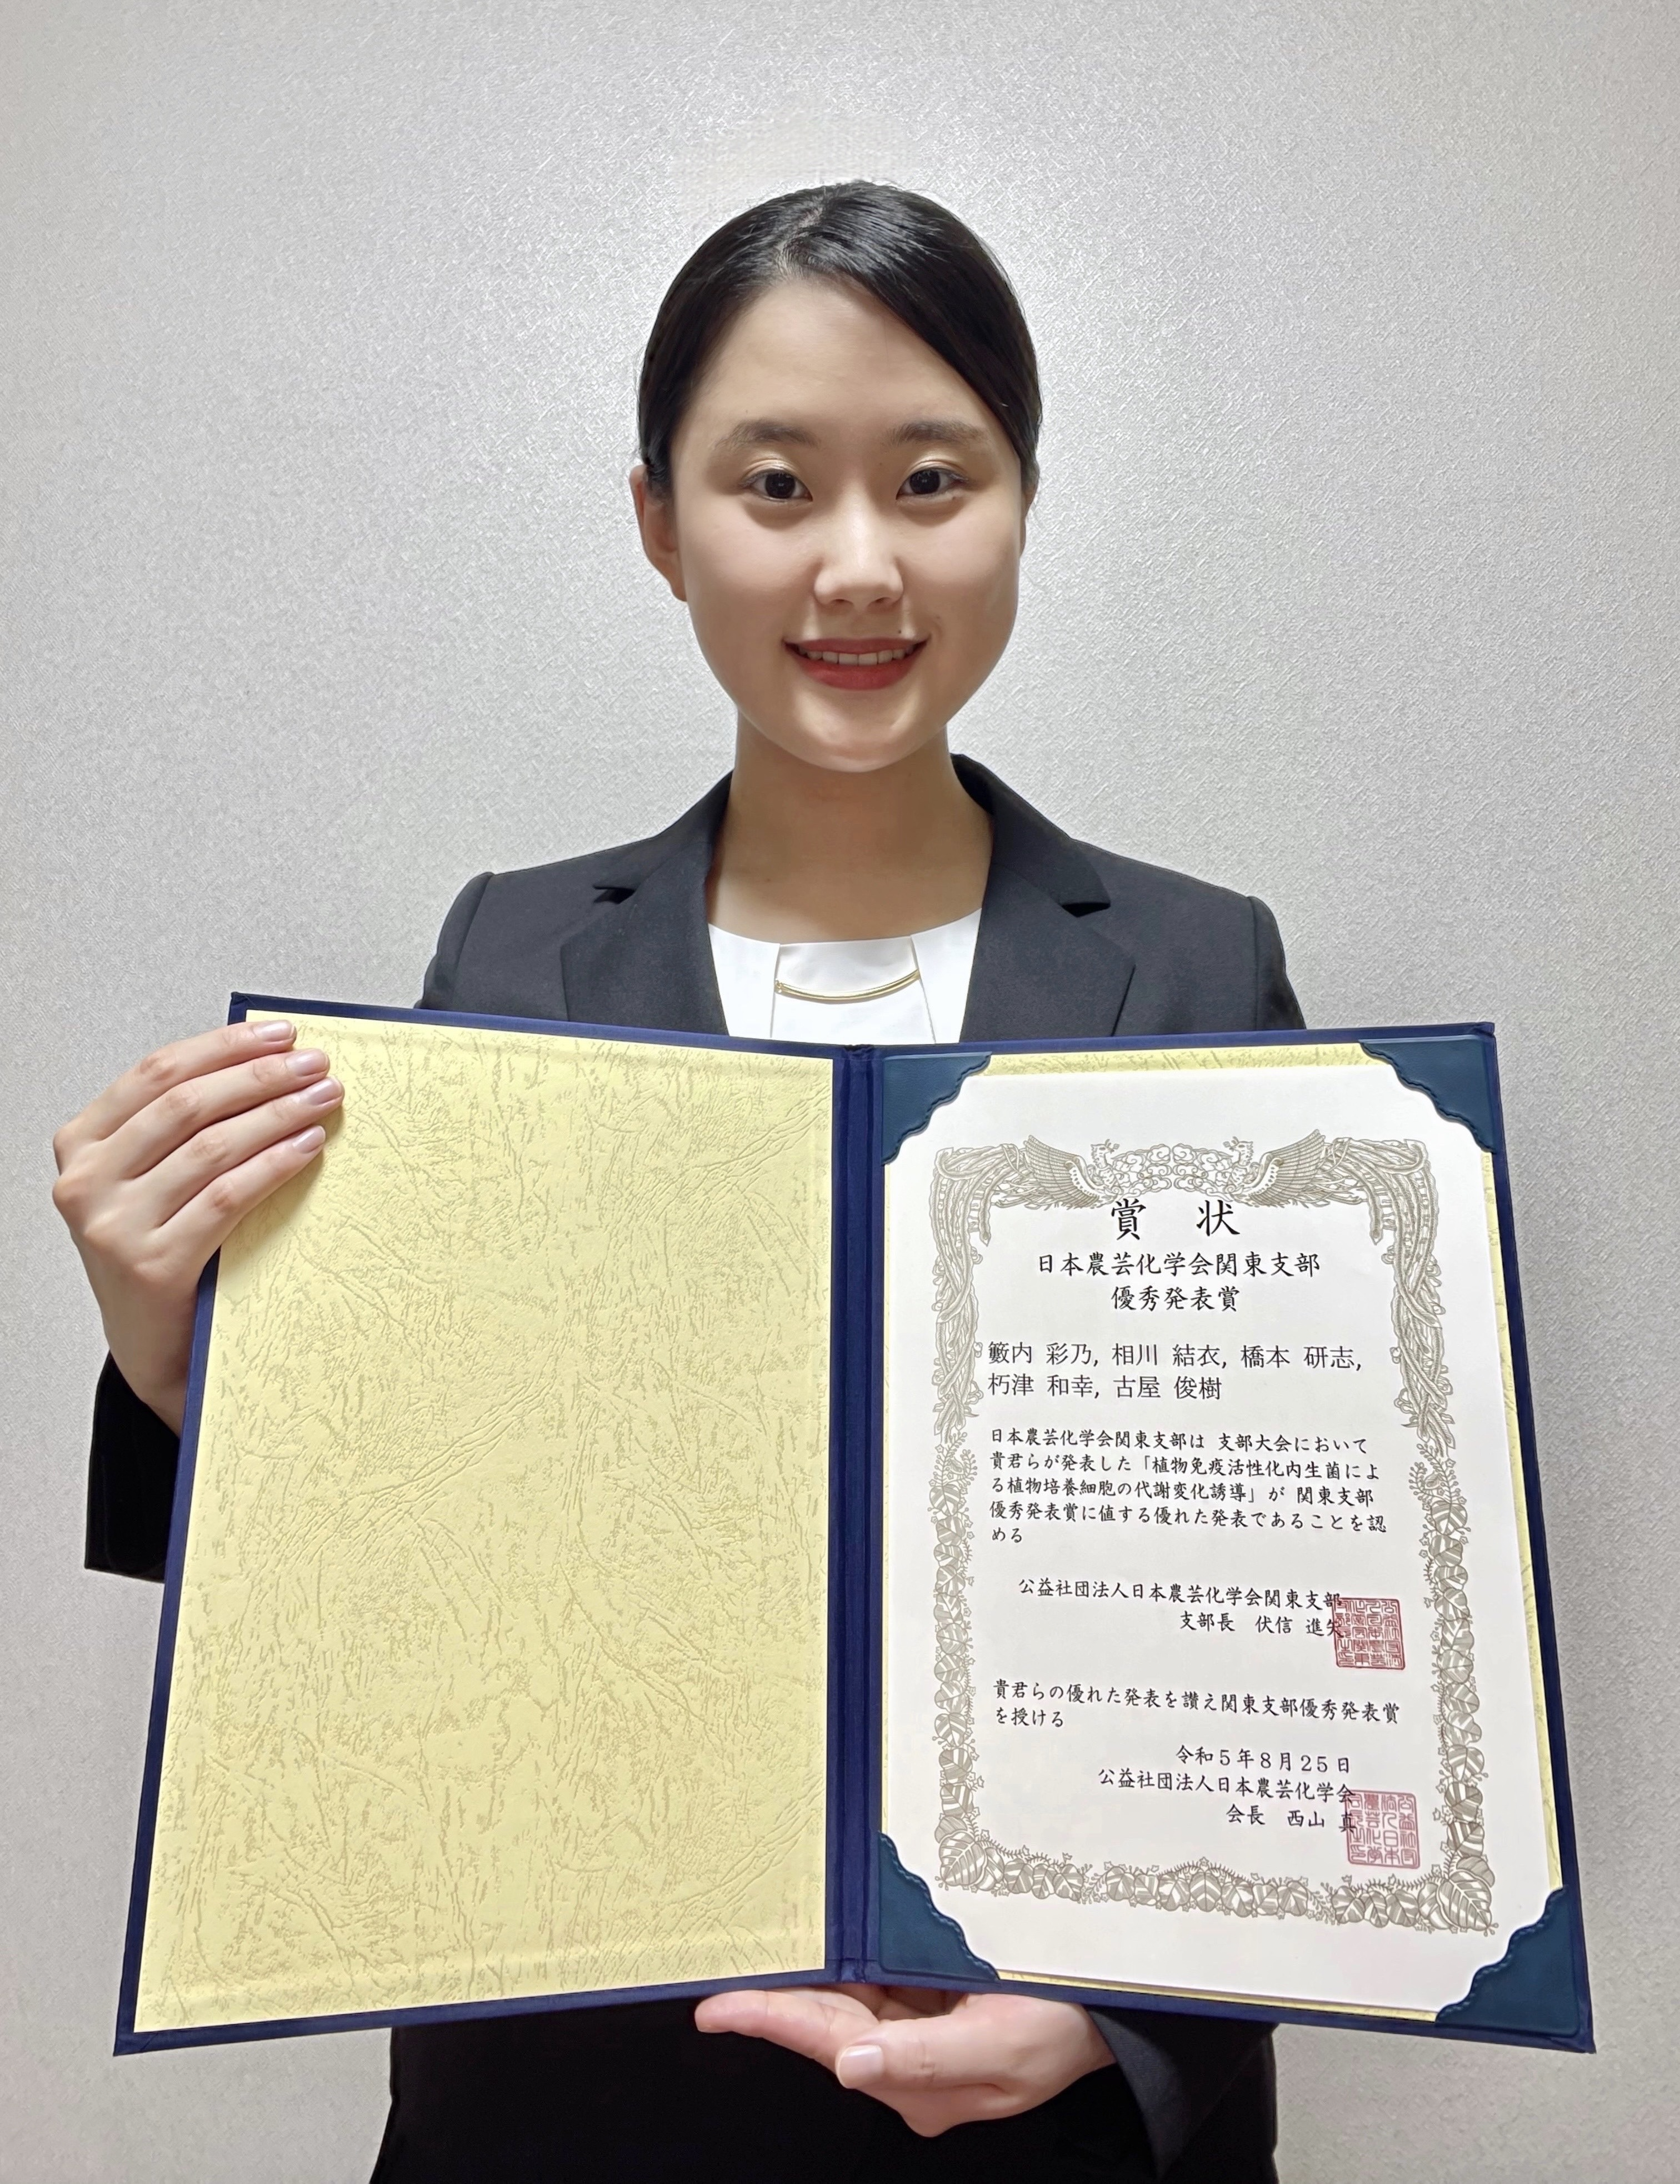 賞 状
日本農芸化学会関東支部
優秀発表賞
籔内 彩乃, 相川 結衣, 橋本 研志,
朽津 和幸, 古屋 俊樹
日本農芸化学会関東支部は 支部大会において
貴君らが発表した「植物免疫活性化内生菌によ
る植物培養細胞の代謝変化誘導」が 関東支部
優秀発表賞に値する優れた発表であることを認
める
公益社団法人日本農芸化学会関東支部
支部長 伏信 進矢
貴君らの優れた発表を讃え関東支部優秀発表賞
を授ける
令和5年8月25日
公益社団法人日本農芸化学会
会長 西山 真